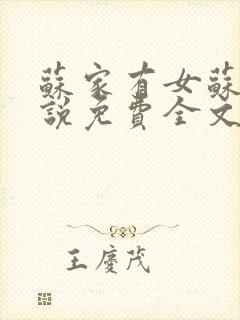 蘇家有女蘇
說免費全文
王慶茂